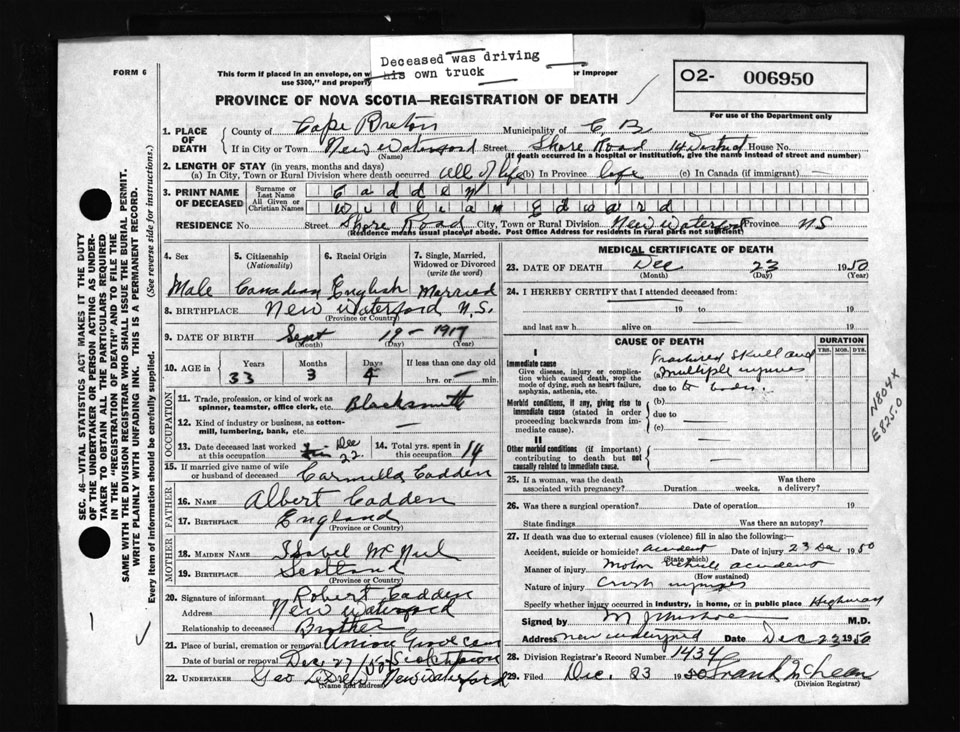 Deceased was driving
his own truck
FORM 6
This form if placed in an envelope, on w
or improper
use $300," and property
O2- 006950
PROVINCE OF NOVA SCOTIA—REGISTRATION OF DEATH
For use of the Department only
1. PLACE OF DEATH County of Cape Breton Municipality of C B
If in City or Town New Waterford Street Shore Road 14 District House No.
(Name) (If death occurred in a hospital or institution, give the name instead of street and number)
2. LENGTH OF STAY (in years, months and days)
(a) In City, Town or Rural Division where death occurred all of life (b) In Province life (c) In Canada (if immigrant) —
3. PRINT NAME OF DECEASED Surname or Last Name Cadden
All Given or Christian Names William Edward
RESIDENCE No. Street Shore Road City, Town or Rural Division New Waterford Province NS
(Residence means usual place of abode. Post Office Address for residents in rural parts not sufficient)
4. Sex 5. Citizenship (Nationality) 6. Racial Origin 7. Single, Married, Widowed or Divorced (write the word)
Male Canadian English Married
8. BIRTHPLACE New Waterford N.S.
(Province or Country)
9. DATE OF BIRTH Sept 19 - 1917
(Month) (Day) (Year)
10. AGE in Years Months Days If less than one day old
33 3 4 hrs. or — min.
OCCUPATION
11. Trade, profession, or kind of work as spinner, teamster, office clerk, etc. Blacksmith
12. Kind of industry or business, as cotton-mill, lumbering, bank, etc. —
13. Date deceased last worked at this occupation Dec 22 14. Total yrs. spent in this occupation 14
15. If married give name of wife or husband of deceased Carmella Cadden
FATHER
16. NAME Albert Cadden
17. BIRTHPLACE England
(Province or Country)
MOTHER
18. MAIDEN NAME Isabel McNeil
19. BIRTHPLACE Scotland
(Province or Country)
20. Signature of informant Robert Cadden
Address New Waterford
Relationship to deceased Brother
21. Place of burial, cremation or removal Union Grove Cem
Date of burial or removal Dec 27/50 Scotchtown
22. UNDERTAKER Geo New Waterford
(Name and address)
MEDICAL CERTIFICATE OF DEATH
23. DATE OF DEATH Dec 23 1950
(Month) (Day) (Year)
24. I HEREBY CERTIFY that I attended deceased from:
19 to 19
and last saw h alive on 19
CAUSE OF DEATH DURATION
YRS. MOS. DYS.
I
Immediate cause
Give disease, injury or complication which caused death, not the mode of dying, such as heart failure, asphyxia, asthenia, etc.
Fractured Skull and
(a) Multiple injuries
due to
Morbid conditions, if any, giving rise to immediate cause (stated in order proceeding backwards from immediate cause).
(b)
due to
(c)
II
Other morbid conditions (if important) contributing to death but not causally related to immediate cause.
N804X
E825.0
25. If a woman, was the death associated with pregnancy? Duration weeks. Was there a delivery?
26. Was there a surgical operation? Date of operation 19
State findings Was there an autopsy?
27. If death was due to external causes (violence) fill in also the following:—
Accident, suicide or homicide? accident Date of injury 23 Dec 1950
(State which)
Manner of injury Motor vehicle accident
(How sustained)
Nature of injury Crush injuries
Specify whether injury occurred in industry, in home, or in public place Highway
Signed by M.D.
Address New Waterford Date Dec 23 1950
28. Division Registrar's Record Number 1434
29. Filed Dec. 23 1950 Frank McLean
(Division Registrar)
SEC. 46—VITAL STATISTICS ACT MAKES IT THE DUTY
OF THE UNDERTAKER OR PERSON ACTING AS UNDER-
TAKER TO OBTAIN ALL THE PARTICULARS REQUIRED
IN THE "REGISTRATION OF DEATH" AND TO FILE THE
SAME WITH THE DIVISION REGISTRAR WHO SHALL ISSUE THE BURIAL PERMIT.
WRITE PLAINLY WITH UNFADING INK. THIS IS A PERMANENT RECORD.
Every item of information should be carefully supplied. (See reverse side for instructions.)